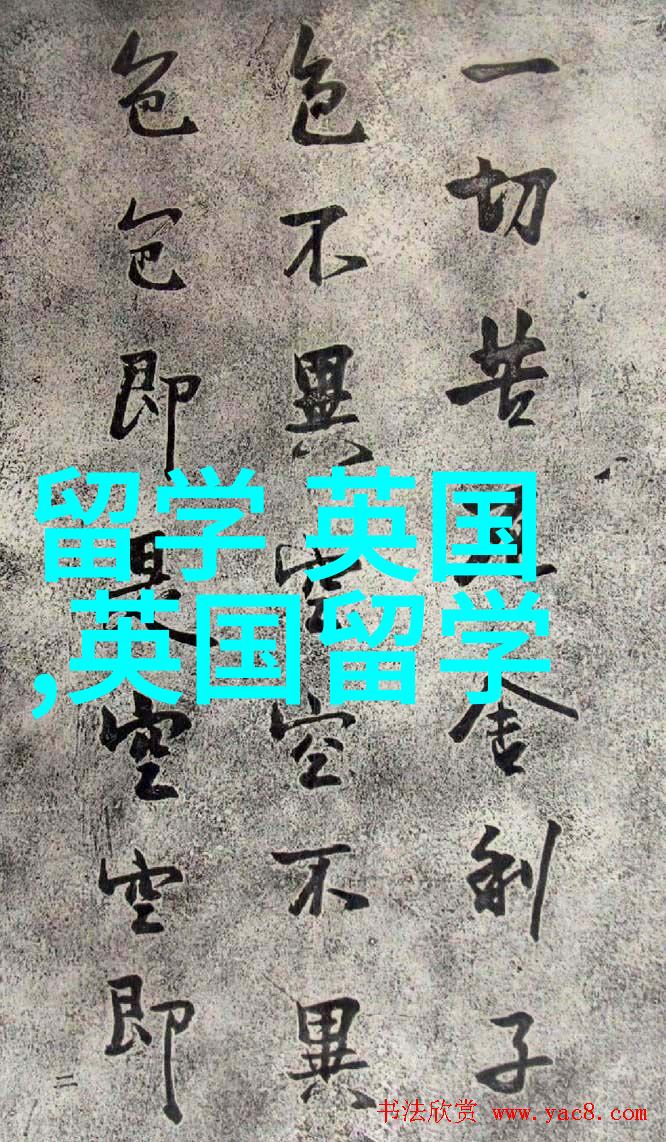 一切苦厄舍利子
色不異空空不異
色色即是空空即
二
留学 英国
,英国留学
书法欣赏 www.yac8.com